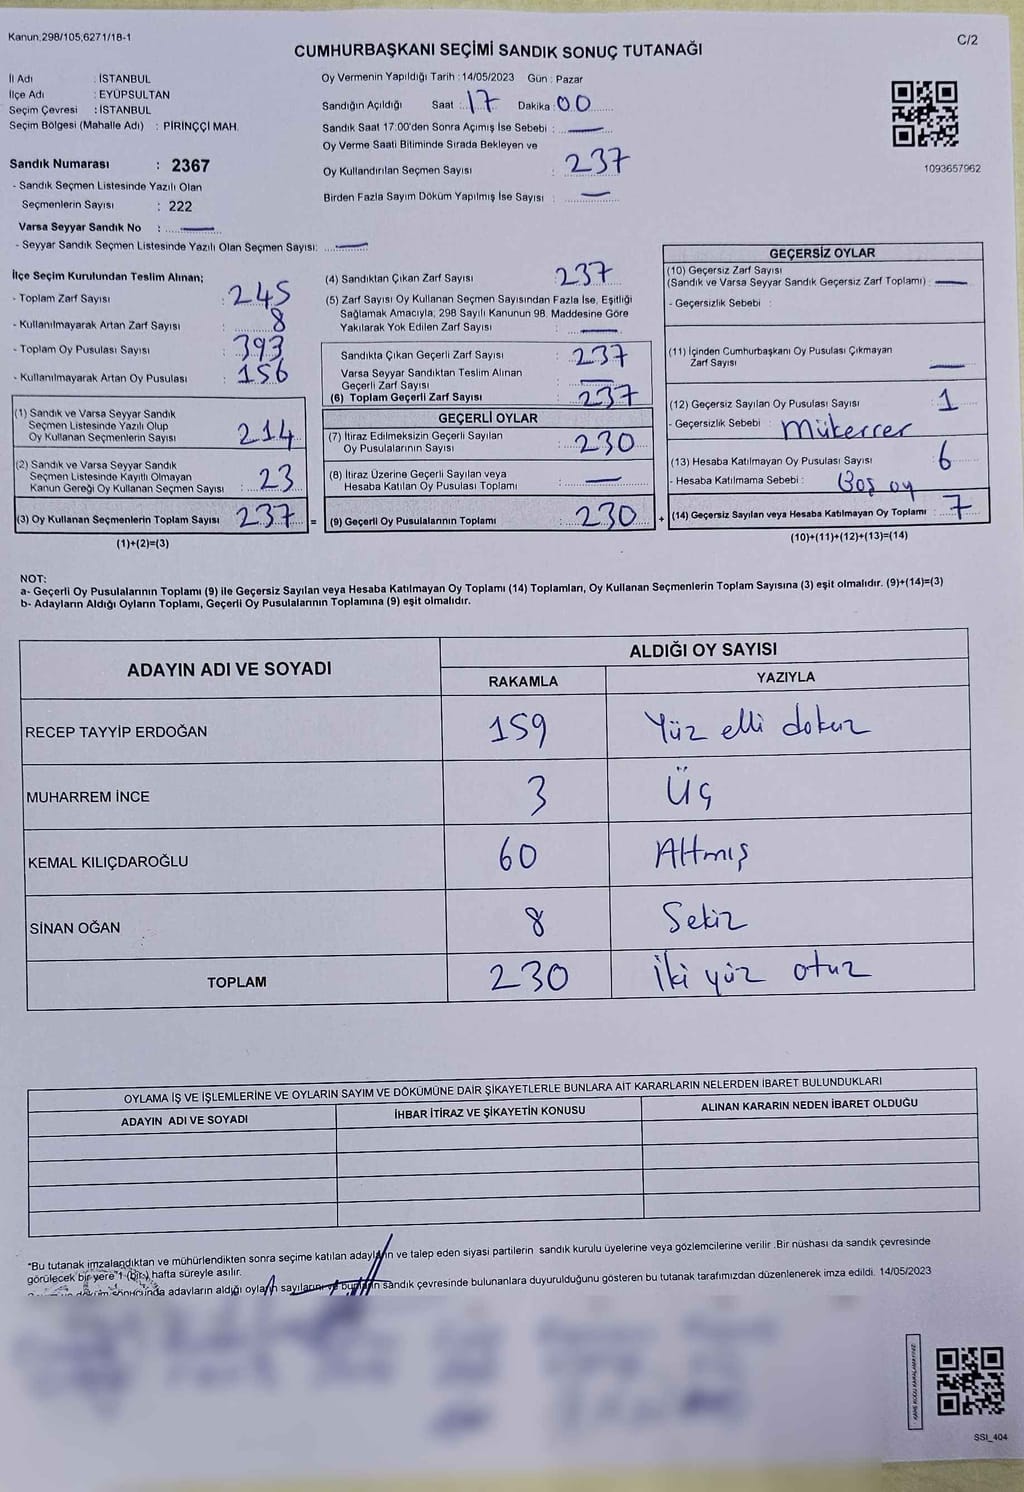 Kanun;298/105,6271/18-1
C/2
CUMHURBAŞKANI SEÇİMİ SANDIK SONUÇ TUTANAĞI
İl Adı : İSTANBUL
İlçe Adı : EYÜPSULTAN
Seçim Çevresi : İSTANBUL
Seçim Bölgesi (Mahalle Adı) : PİRİNÇÇİ MAH.
Sandık Numarası : 2367
- Sandık Seçmen Listesinde Yazılı Olan
Seçmenlerin Sayısı : 222
Varsa Seyyar Sandık No : —
- Seyyar Sandık Seçmen Listesinde Yazılı Olan Seçmen Sayısı: —
Oy Vermenin Yapıldığı Tarih : 14/05/2023 Gün : Pazar
Sandığın Açıldığı Saat : 17 Dakika : 00
Sandık Saat 17:00'den Sonra Açımış İse Sebebi : —
Oy Verme Saati Bitiminde Sırada Bekleyen ve
Oy Kullandırılan Seçmen Sayısı : 237
Birden Fazla Sayım Döküm Yapılmış İse Sayısı : —
1093657962
İlçe Seçim Kurulundan Teslim Alınan;
- Toplam Zarf Sayısı : 245
- Kullanılmayarak Artan Zarf Sayısı : 8
- Toplam Oy Pusulası Sayısı : 393
- Kullanılmayarak Artan Oy Pusulası : 156
(1) Sandık ve Varsa Seyyar Sandık
Seçmen Listesinde Yazılı Olup
Oy Kullanan Seçmenlerin Sayısı : 214
(2) Sandık ve Varsa Seyyar Sandık
Seçmen Listesinde Kayıtlı Olmayan
Kanun Gereği Oy Kullanan Seçmen Sayısı : 23
(3) Oy Kullanan Seçmenlerin Toplam Sayısı : 237 =
(1)+(2)=(3)
(4) Sandıktan Çıkan Zarf Sayısı : 237
(5) Zarf Sayısı Oy Kullanan Seçmen Sayısından Fazla İse, Eşitliği
Sağlamak Amacıyla; 298 Sayılı Kanunun 98. Maddesine Göre
Yakılarak Yok Edilen Zarf Sayısı : —
Sandıkta Çıkan Geçerli Zarf Sayısı : 237
Varsa Seyyar Sandıktan Teslim Alınan
Geçerli Zarf Sayısı : —
(6) Toplam Geçerli Zarf Sayısı : 237
GEÇERLİ OYLAR
(7) İtiraz Edilmeksizin Geçerli Sayılan
Oy Pusulalarının Sayısı : 230
(8) İtiraz Üzerine Geçerli Sayılan veya
Hesaba Katılan Oy Pusulası Toplamı : —
(9) Geçerli Oy Pusulalarının Toplamı : 230 +
GEÇERSİZ OYLAR
(10) Geçersiz Zarf Sayısı
(Sandık ve Varsa Seyyar Sandık Geçersiz Zarf Toplamı) : —
- Geçersizlik Sebebi :
(11) İçinden Cumhurbaşkanı Oy Pusulası Çıkmayan
Zarf Sayısı —
(12) Geçersiz Sayılan Oy Pusulası Sayısı : 1
- Geçersizlik Sebebi : Mükerrer
(13) Hesaba Katılmayan Oy Pusulası Sayısı : 6
- Hesaba Katılmama Sebebi : Boş oy
(14) Geçersiz Sayılan veya Hesaba Katılmayan Oy Toplamı : 7
(10)+(11)+(12)+(13)=(14)
NOT:
a- Geçerli Oy Pusulalarının Toplamı (9) ile Geçersiz Sayılan veya Hesaba Katılmayan Oy Toplamı (14) Toplamları, Oy Kullanan Seçmenlerin Toplam Sayısına (3) eşit olmalıdır. (9)+(14)=(3)
b- Adayların Aldığı Oyların Toplamı, Geçerli Oy Pusulalarının Toplamına (9) eşit olmalıdır.
ADAYIN ADI VE SOYADI
ALDIĞI OY SAYISI
RAKAMLA YAZIYLA
RECEP TAYYİP ERDOĞAN 159 Yüz elli dokuz
MUHARREM İNCE 3 Üç
KEMAL KILIÇDAROĞLU 60 Altmış
SİNAN OĞAN 8 Sekiz
TOPLAM 230 İki yüz otuz
OYLAMA İŞ VE İŞLEMLERİNE VE OYLARIN SAYIM VE DÖKÜMÜNE DAİR ŞİKAYETLERLE BUNLARA AİT KARARLARIN NELERDEN İBARET BULUNDUKLARI
ADAYIN ADI VE SOYADI
İHBAR İTİRAZ VE ŞİKAYETİN KONUSU
ALINAN KARARIN NEDEN İBARET OLDUĞU
*Bu tutanak imzalandıktan ve mühürlendikten sonra seçime katılan adayların ve talep eden siyasi partilerin sandık kurulu üyelerine veya gözlemcilerine verilir .Bir nüshası da sandık çevresinde
görülecek bir yere 1 (bir) hafta süreyle asılır.
sonucunda adayların aldığı oyların sayılarını ve bunların sandık çevresinde bulunanlara duyurulduğunu gösteren bu tutanak tarafımızdan düzenlenerek imza edildi. 14/05/2023
SSI_404